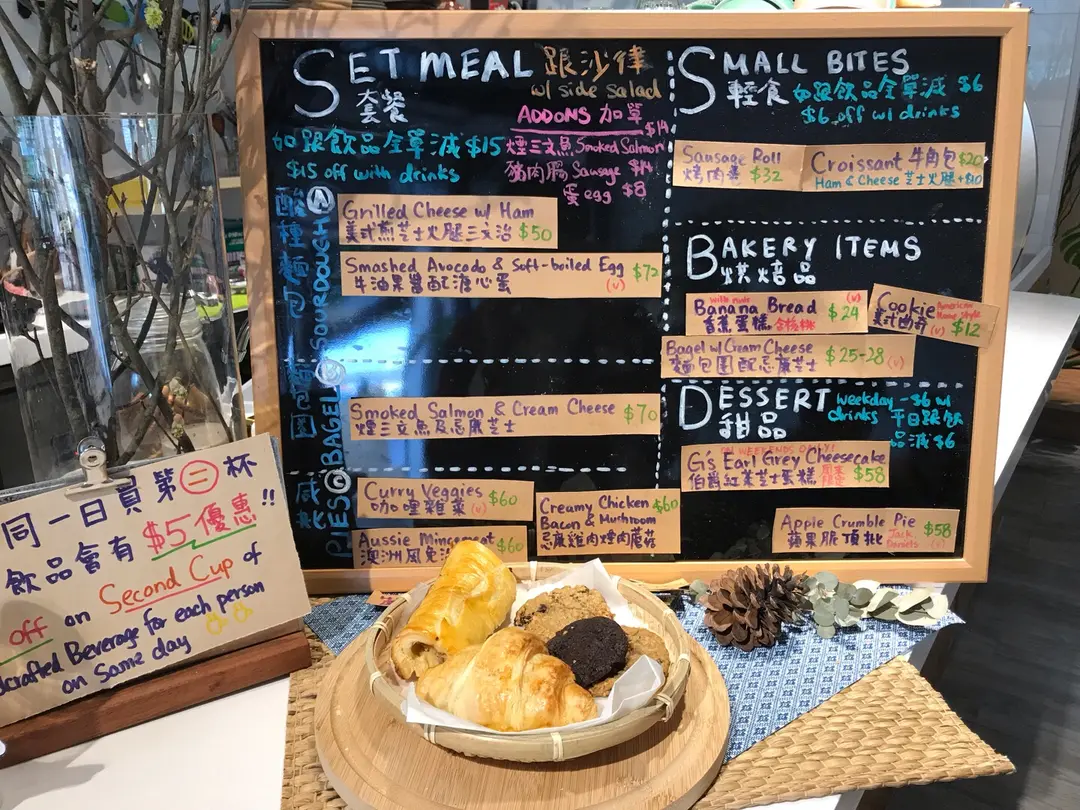 SET MEAL 跟沙律
w/ side salad
套餐
ADDONS 加單
如跟飲品全單減 $15
$15 off with drinks
$14
煙三文魚 Smoked Salmon
豬肉腸 Sausage $14
蛋 egg $8
酸種麵包 @ SOURDOUGH
Grilled Cheese w/ Ham
美式煎芝士火腿三文治 $50
Smashed Avocado & Soft-boiled Egg $72
牛油果醬配溏心蛋 (v)
麵包圈 @ BAGEL
Smoked Salmon & Cream Cheese $70
煙三文魚及忌廉芝士
PIES
Curry Veggies $60
咖喱雜菜 (v)
Creamy Chicken $60
Bacon & Mushroom
忌廉雞肉烟肉蘑菇
Aussie $60
澳洲風免治
SMALL BITES
輕食 如跟飲品全單減 $6
$6 off w/ drinks
Sausage Roll
烤肉卷 $32
Croissant 牛角包 $20
Ham & Cheese 芝士火腿 +$10
BAKERY ITEMS
烘焙品
with nuts (v)
Banana Bread $24
香蕉蛋糕 含核桃
Cookie American Home Style
美式曲奇 (v) $12
Bagel w/ Cream Cheese $25-28
麵包圈配忌廉芝士 (v)
DESSERT
甜品
weekday -$6 w/
drinks 平日跟飲
品減 $6
ON WEEKENDS ONLY!
G's Earl Grey Cheesecake
伯爵紅茶芝士蛋糕 $58
Apple Crumble Pie $58
蘋果脆頂批 Jack Daniels
同一日員第二杯
飲品會有 $5 優惠!!
off on Second Cup of
Beverage for each person
on Same day